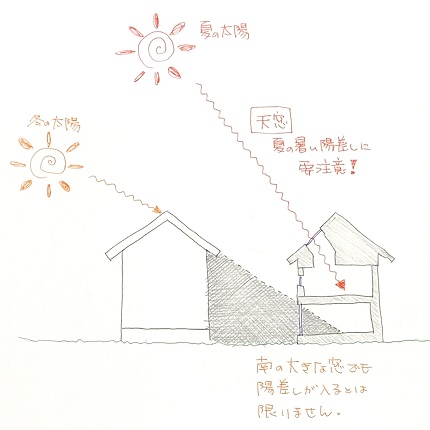 夏の太陽
冬の太陽
天窓
夏の暑い陽差しに
要注意!
南の大きな窓でも
陽差しが入るとは
限りません。